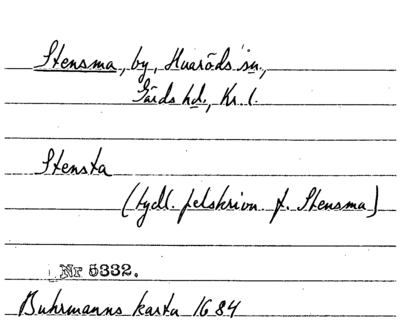 Stensma, by, Huaröds sn.,
Gärds hd., Kr. l.
Stensta
(tydl. felskrivn. f. Stensma)
Nr 5332.
Buhrmanns karta 1684